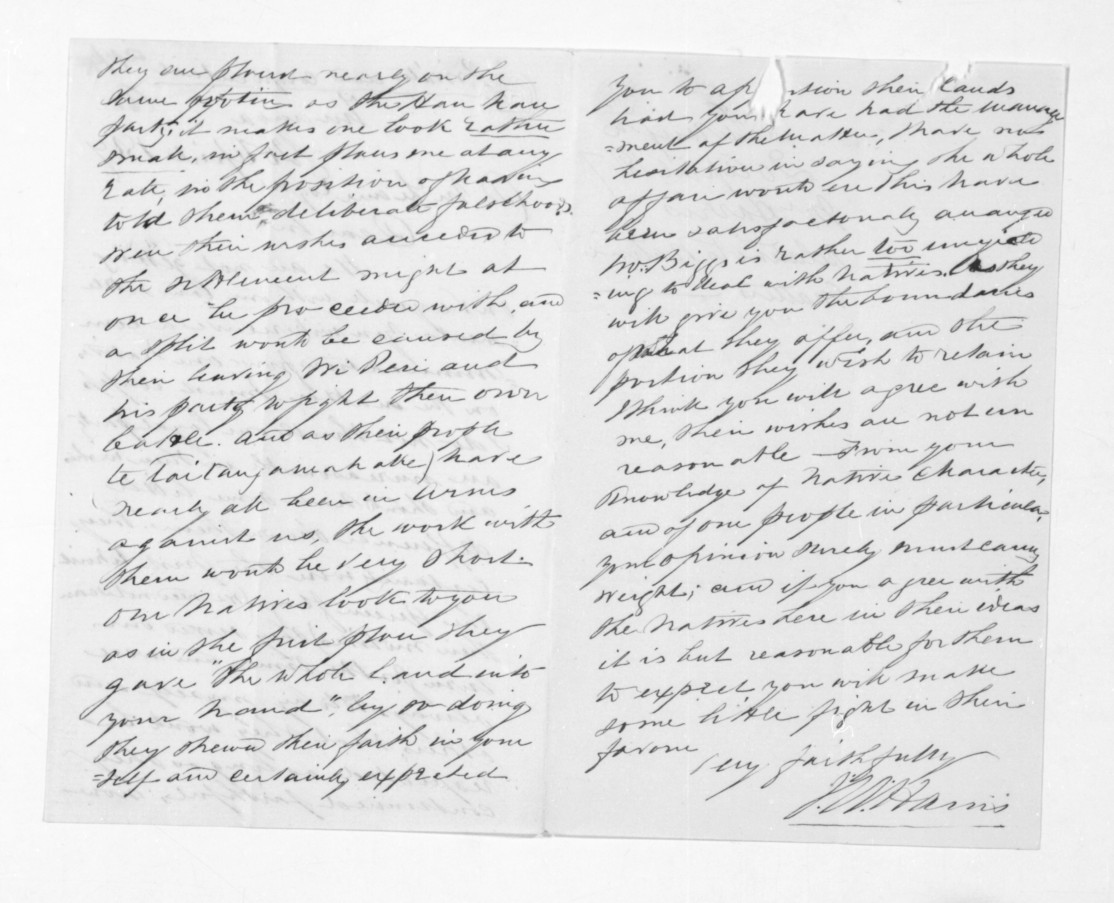 they are placed nearly on the
same footing as the Hau Hau
party, it makes one look rather
small, in fact places me at any
rate, in the position of having
told them "deliberate falsehoods.
Were their wishes acceded to
the settlement might at
once be proceeded with, and
a split would be caused by
their leaving Wi Pere and
his party to fight their own
battle. and as their people
te Aitangamahake) have
nearly all been in arms
against us, the work with
them would be very short.
our Natives look to you
as in the first place they
gave "the whole Land into
your hand", by so doing
they shewed their faith in your
=self and certainly expected
you to apportion their lands
had you have had the manage
=ment of the matter, I have no
hesitation in saying the whole
affair would ere this have
been satisfactorily arranged
Mr. Biggs is rather too
=ing to deal with Natives. As they
will give you the boundaries
of what they offer, and the
portion they wish to retain
I think you will agree with
me, their wishes are not un
reasonable — From your
Knowledge of Native Character,
and of our people in particular,
your opinion surely must carry
weight; and if you agree with
the Natives here in their ideas
it is but reasonable for them
to expect you will make
some little fight in their
favour
Very faithfully
J.W. Harris